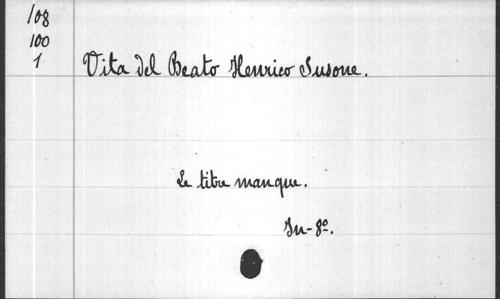 108
100
1
Vita del Beato Henrico Susone.
Le titre manque.
In-8º.